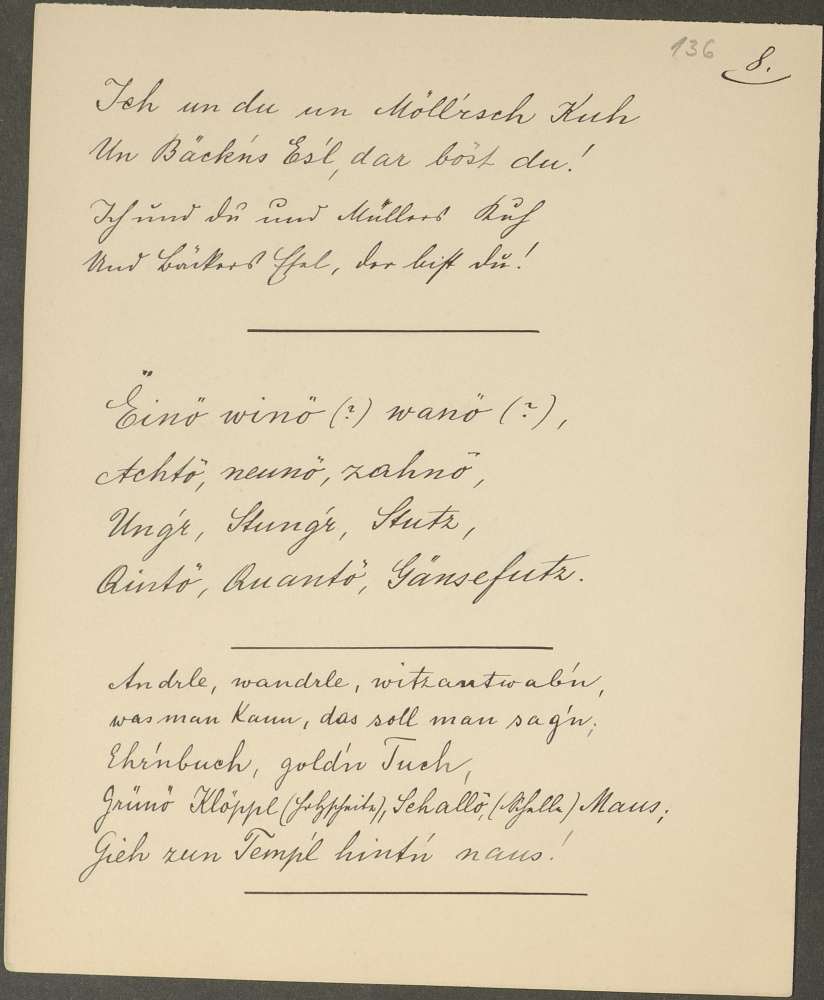 136 8.
Ich un du un Möll'rsch Kuh
Un Bäck'ns Es'l, dar böst du!
Ich und du und Müllers Kuh
Und Bäckers Esel, der bist du!
Ëinö winö (?) wanö (?),
Achtö, neunö, zahnö,
Ung'r, Stung'r, Stutz,
Qintö, Quantö, Gänsefutz.
Andrle, wandrle, witzantwab'n,
was man Kann, das soll man sag'n;
Ehr'nbuch, gold'n Tuch,
Grünö Klöppl (Holzscheite), Schallö, (Schelle) Maus;
Gieh zun Temp'l hint'n naus!